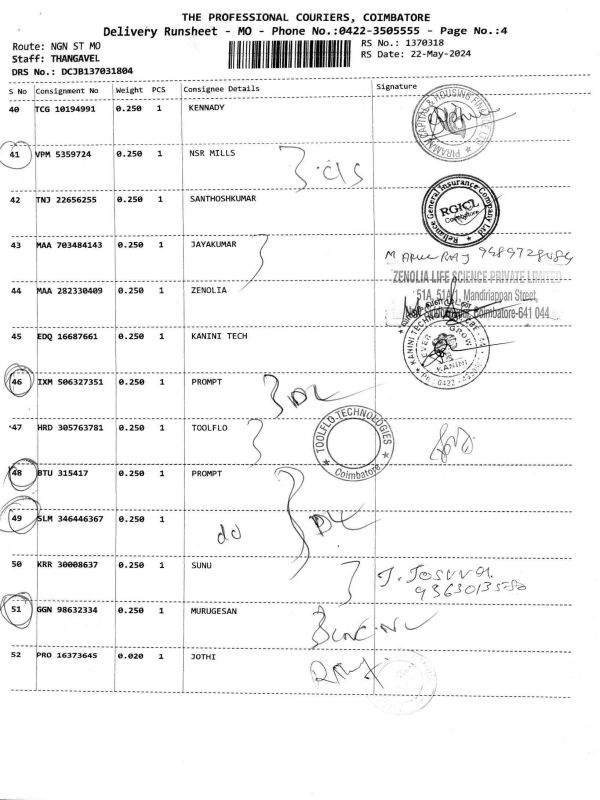 THE PROFESSIONAL COURIERS, COIMBATORE
Delivery Runsheet - MO - Phone No.:0422-3505555 - Page No.:4
Route: NGN ST MO
RS No.: 1370318
Staff: THANGAVEL
RS Date: 22-May-2024
DRS No.: DCJB137031804
S No Consignment No Weight PCS Consignee Details Signature
40 TCG 10194991 0.250 1 KENNADY
PIRAMAL CAPITAL & HOUSING FINANCE LTD
41 VPM 5359724 0.250 1 NSR MILLS
42 TNJ 22656255 0.250 1 SANTHOSHKUMAR
Reliance General Insurance Company Ltd
RGICL
Coimbatore
43 MAA 703484143 0.250 1 JAYAKUMAR
44 MAA 282330409 0.250 1 ZENOLIA
ZENOLIA LIFE SCIENCE PRIVATE LIMITED
51A, 51A/1, Mandiriappan Street,
Coimbatore-641 044
45 EDQ 16687661 0.250 1 KANINI TECH
KANINI TECHNO
EVER GROW
KANINI
46 IXM 506327351 0.250 1 PROMPT DL
47 HRD 305763781 0.250 1 TOOLFLO
TOOLFLO TECHNOLOGIES
Coimbatore
48 BTU 315417 0.250 1 PROMPT
49 SLM 346446367 0.250 1 do DL
50 KRR 30008637 0.250 1 SUNU
51 GGN 98632334 0.250 1 MURUGESAN
52 PRO 16373645 0.020 1 JOTHI